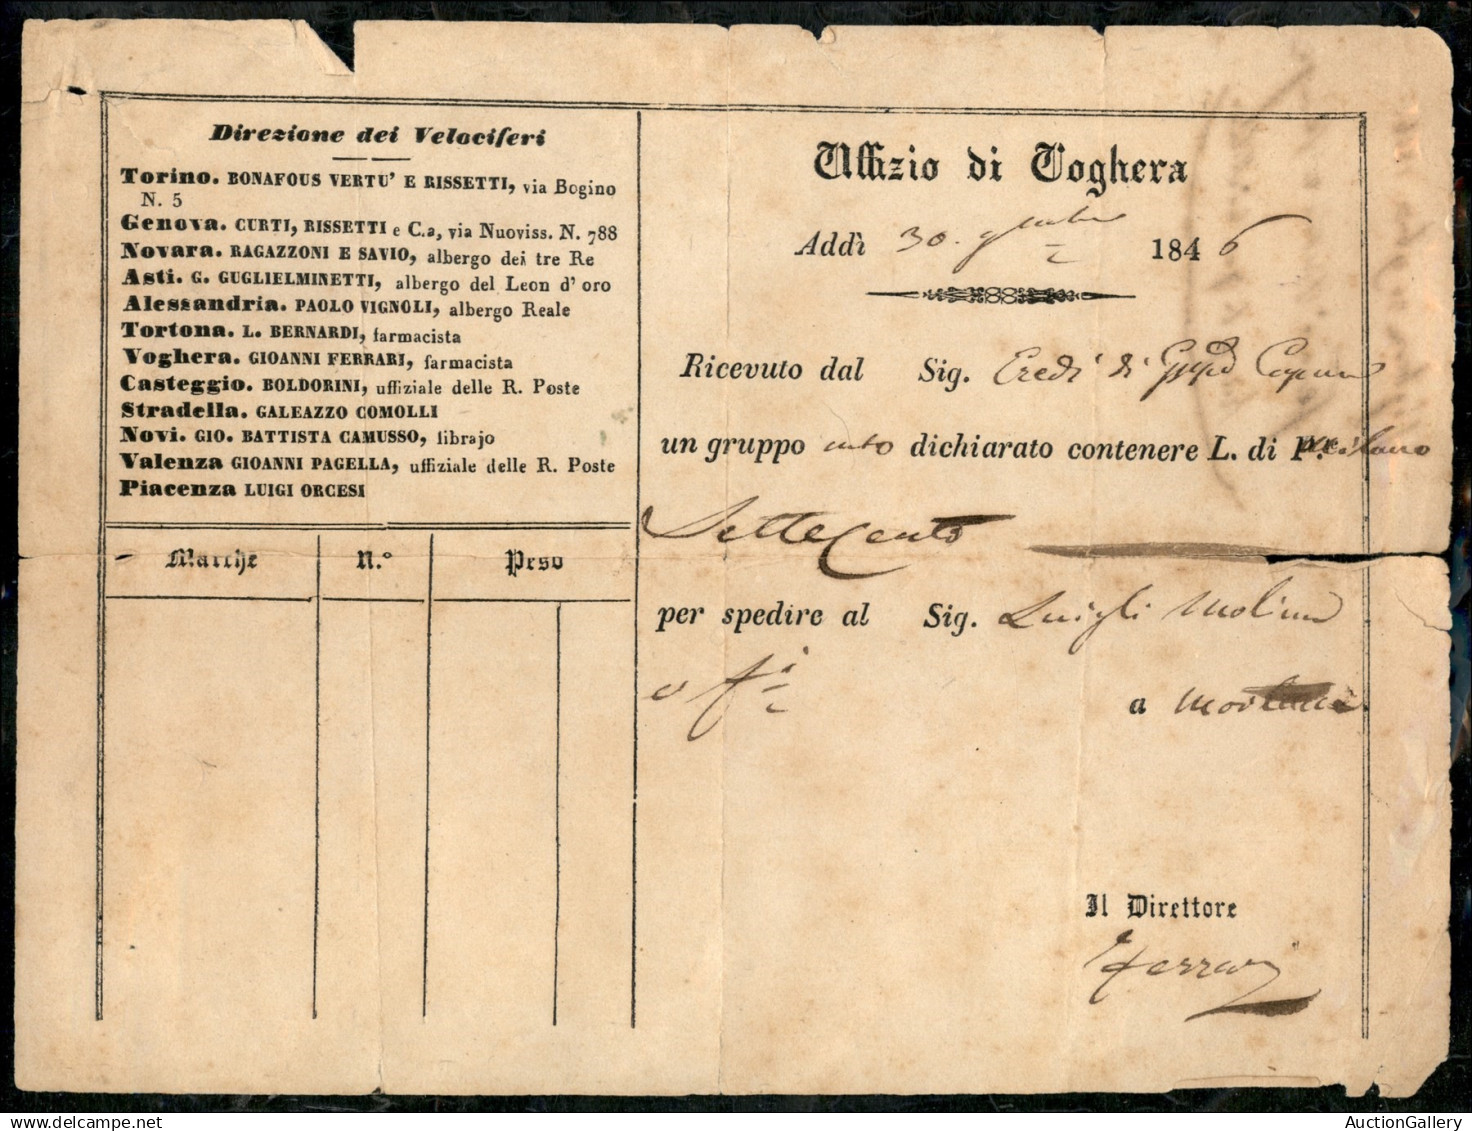 Direzione dei Velociferi
Torino. BONAFOUS VERTU' E RISSETTI, via Bogino
N. 5
Genova. CURTI, RISSETTI e C.a, via Nuoviss. N. 788
Novara. RAGAZZONI E SAVIO, albergo dei tre Re
Asti. G. GUGLIELMINETTI, albergo del Leon d' oro
Alessandria. PAOLO VIGNOLI, albergo Reale
Tortona. L. BERNARDI, farmacista
Voghera. GIOANNI FERRARI, farmacista
Casteggio. BOLDORINI, uffiziale delle R. Poste
Stradella. GALEAZZO COMOLLI
Novi. GIO. BATTISTA CAMUSSO, librajo
Valenza GIOANNI PAGELLA, uffiziale delle R. Poste
Piacenza LUIGI ORCESI
Marche N.° Peso
Uffizio di Voghera
Addì 30. 1846
Ricevuto dal Sig. Eredi di
un gruppo dichiarato contenere L. di Milano
Settecento
per spedire al Sig. Luigi Molina
a Mortara
Il Direttore
Ferrari
AuctionGallery